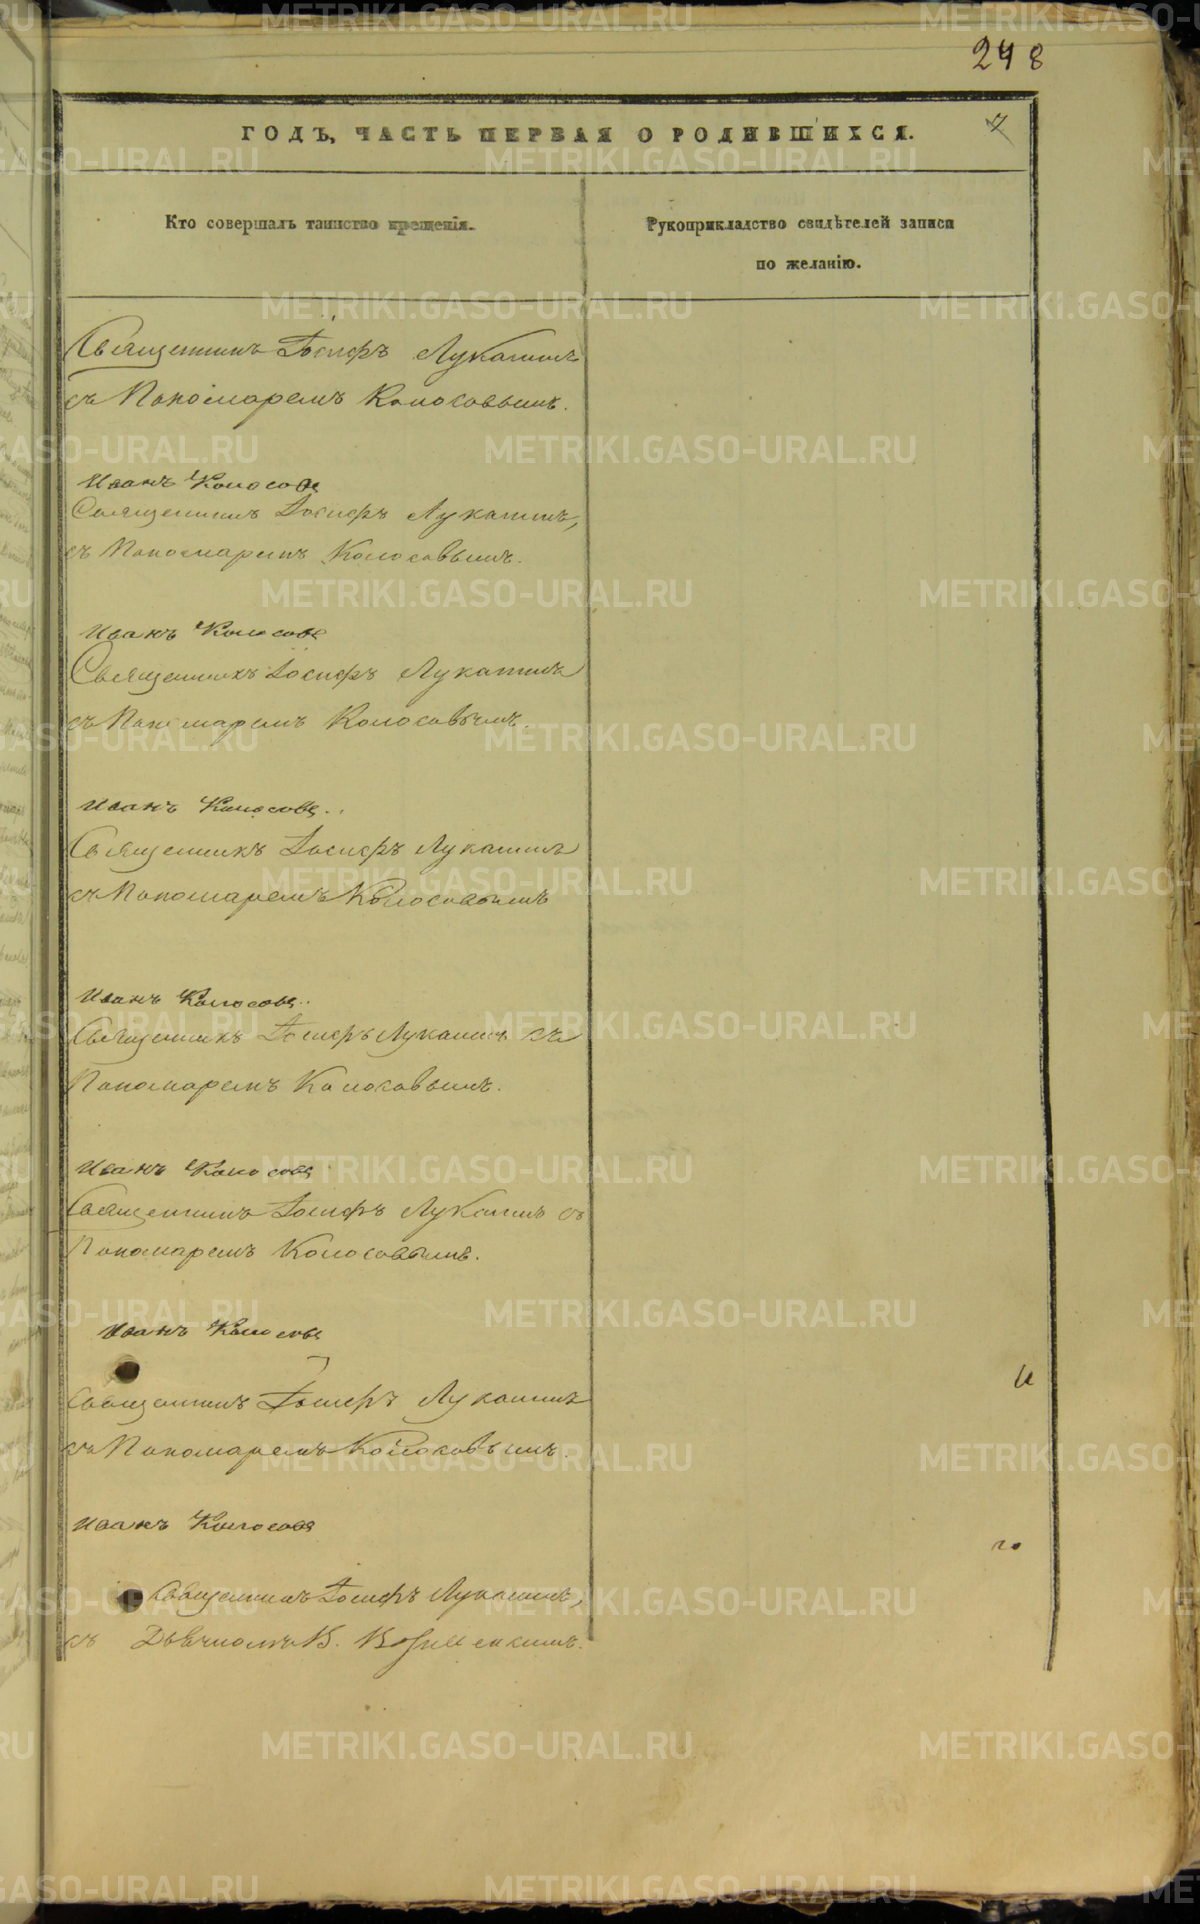 248
ГОДЪ, ЧАСТЬ ПЕРВАЯ О РОДИВШИХСЯ.
Кто совершалъ таинство крещенія.
Рукоприкладство свидѣтелей записи
по желанію.
Священникъ Іосифъ Лукашинъ
съ Пономаремъ Колосовымъ.
Иванъ Колосовъ
Священникъ Іосифъ Лукашинъ,
съ Пономаремъ Колосовымъ.
Иванъ Колосовъ
Священникъ Іосифъ Лукашинъ
съ Пономаремъ Колосовымъ.
Иванъ Колосовъ.
Священникъ Іосифъ Лукашинъ
съ Пономаремъ Колосовымъ
Иванъ Колосовъ.
Священникъ Іосифъ Лукашинъ съ
Пономаремъ Колосовымъ.
Иванъ Колосовъ
Священникъ Іосифъ Лукашинъ съ
Пономаремъ Колосовымъ.
Иванъ Колосовъ
Священникъ Іосифъ Лукашинъ
съ Пономаремъ Колосовымъ.
Иванъ Колосовъ
Священникъ Іосифъ Лукашинъ,
съ
METRIKI.GASO-URAL.RU